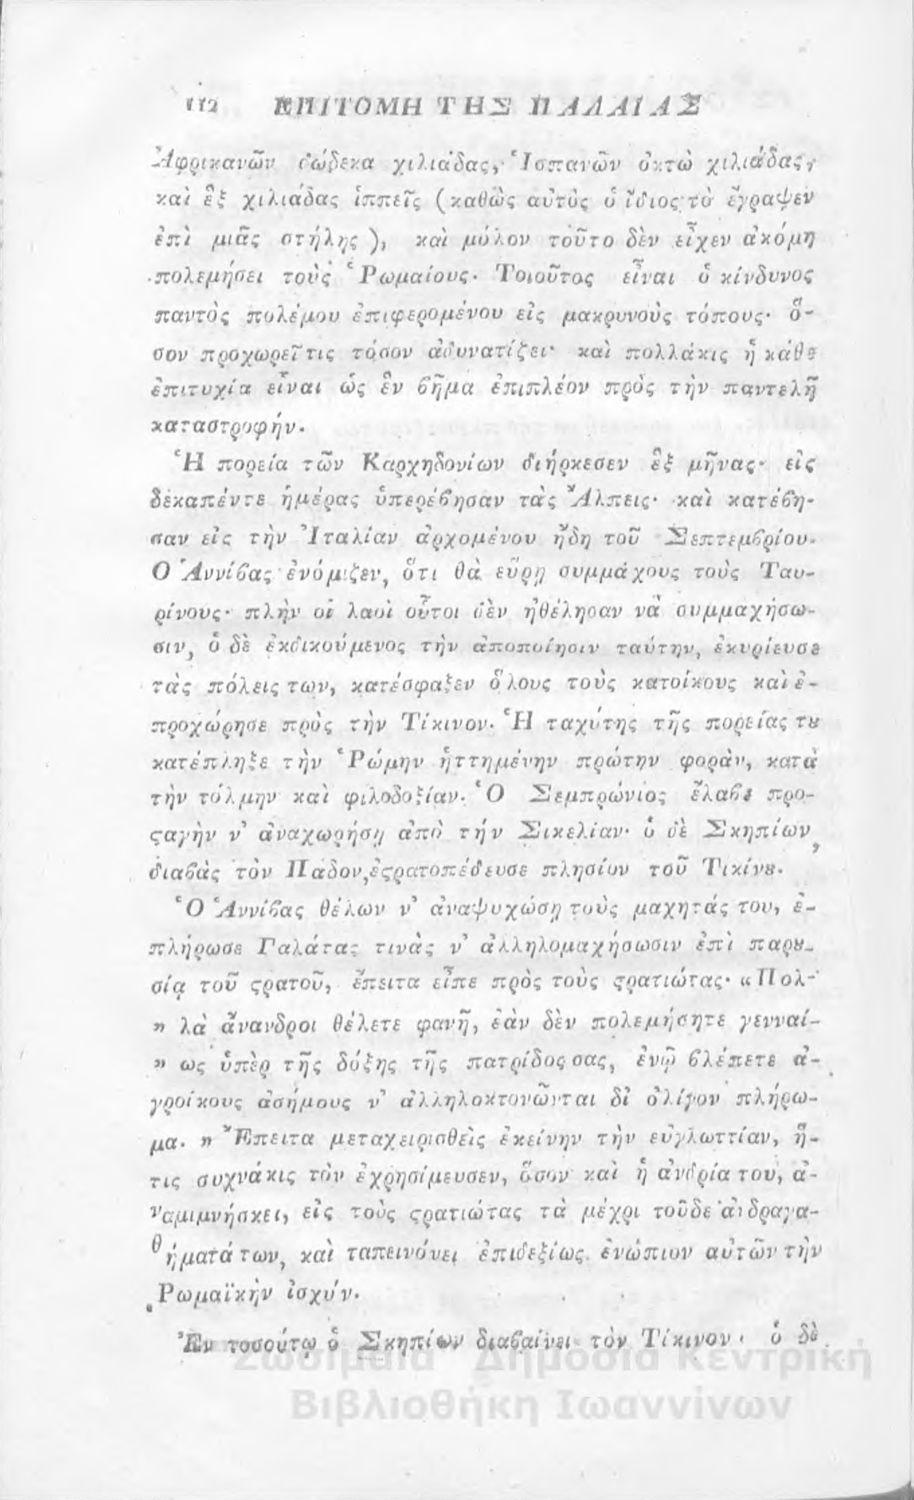 112 ΕΠΙΤΟΜΗ ΤΗΣ ΠΑΛΑΙΑΣ
Ἀφρικανῶν δώδεκα χιλιάδας, Ἱσπανῶν ὀκτὼ χιλιάδας,
καὶ ἓξ χιλιάδας ἱππεῖς (καθὼς αὐτὸς ὁ ἴδιος τὸ ἔγραψεν
ἐπὶ μιᾶς στήλης), καὶ μόλον τοῦτο δὲν εἶχεν ἀκόμη
πολεμήσει τοὺς Ῥωμαίους· Τοιοῦτος εἶναι ὁ κίνδυνος
παντὸς πολέμου ἐπιφερομένου εἰς μακρυνοὺς τόπους· ὅ-
σον προχωρεῖ τις τόσον ἀδυνατίζει· καὶ πολλάκις ἡ κάθε
ἐπιτυχία εἶναι ὡς ἓν βῆμα ἐπιπλέον πρὸς τὴν παντελῆ
καταστροφήν.
Ἡ πορεία τῶν Καρχηδονίων διήρκεσεν ἓξ μῆνας· εἰς
δεκαπέντε ἡμέρας ὑπερέβησαν τὰς Ἄλπεις· καὶ κατέβη-
σαν εἰς τὴν Ἰταλίαν ἀρχομένου ἤδη τοῦ Σεπτεμβρίου.
Ὁ Ἀννίβας ἐνόμιζεν, ὅτι θὰ εὕρῃ συμμάχους τοὺς Ταυ-
ρίνους· πλὴν οἱ λαοὶ οὗτοι δὲν ἠθέλησαν νὰ συμμαχήσω-
σιν, ὁ δὲ ἐκδικούμενος τὴν ἀποποίησιν ταύτην, ἐκυρίευσε
τὰς πόλεις των, κατέσφαξεν ὅλους τοὺς κατοίκους καὶ ἐ-
προχώρησε πρὸς τὴν Τίκινον. Ἡ ταχύτης τῆς πορείας τȣ
κατέπληξε τὴν Ῥώμην ἡττημένην πρώτην φορὰν, κατὰ
τὴν τόλμην καὶ φιλοδοξίαν. Ὁ Σεμπρώνιος ἔλαβε προ-
ϛαγὴν ν' ἀναχωρήσῃ ἀπὸ τήν Σικελίαν· ὁ δὲ Σκηπίων,
διαβὰς τὸν Πάδον, ἐϛρατοπέδευσε πλησίον τοῦ Τικίνȣ.
Ὁ Ἀννίβας θέλων ν' ἀναψυχώσῃ τοὺς μαχητάς του, ἐ-
πλήρωσε Γαλάτας τινὰς ν' ἀλληλομαχήσωσιν ἐπὶ παρȣ-
σίᾳ τοῦ ϛρατοῦ, ἔπειτα εἶπε πρὸς τοὺς ϛρατιώτας· «Πολ-
» λὰ ἄνανδροι θέλετε φανῆ, ἐὰν δὲν πολεμήσητε γενναί-
» ως ὑπὲρ τῆς δόξης τῆς πατρίδος σας, ἐνῷ βλέπετε ἀ-
γροίκους ἀσήμους ν' ἀλληλοκτονῶνται δι' ὀλίγον πλήρω-
μα. » Ἔπειτα μεταχειρισθεὶς ἐκείνην τὴν εὐγλωττίαν, ἥ-
τις συχνάκις τὸν ἐχρησίμευσεν, ὅσον καὶ ἡ ἀνδρία του, ἀ-
ναμιμνήσκει, εἰς τοὺς ϛρατιώτας τὰ μέχρι τοῦδε ἀνδραγα-
θήματά των, καὶ ταπεινόνει ἐπιδεξίως ἐνώπιον αὐτῶν τὴν
Ῥωμαϊκὴν ἰσχύν.
Ἐν τοσούτῳ ὁ Σκηπίων διαβαίνει τὸν Τίκινον· ὁ δὲ
Ζωσιμαία Δημόσια Κεντρική
Βιβλιοθήκη Ιωαννίνων